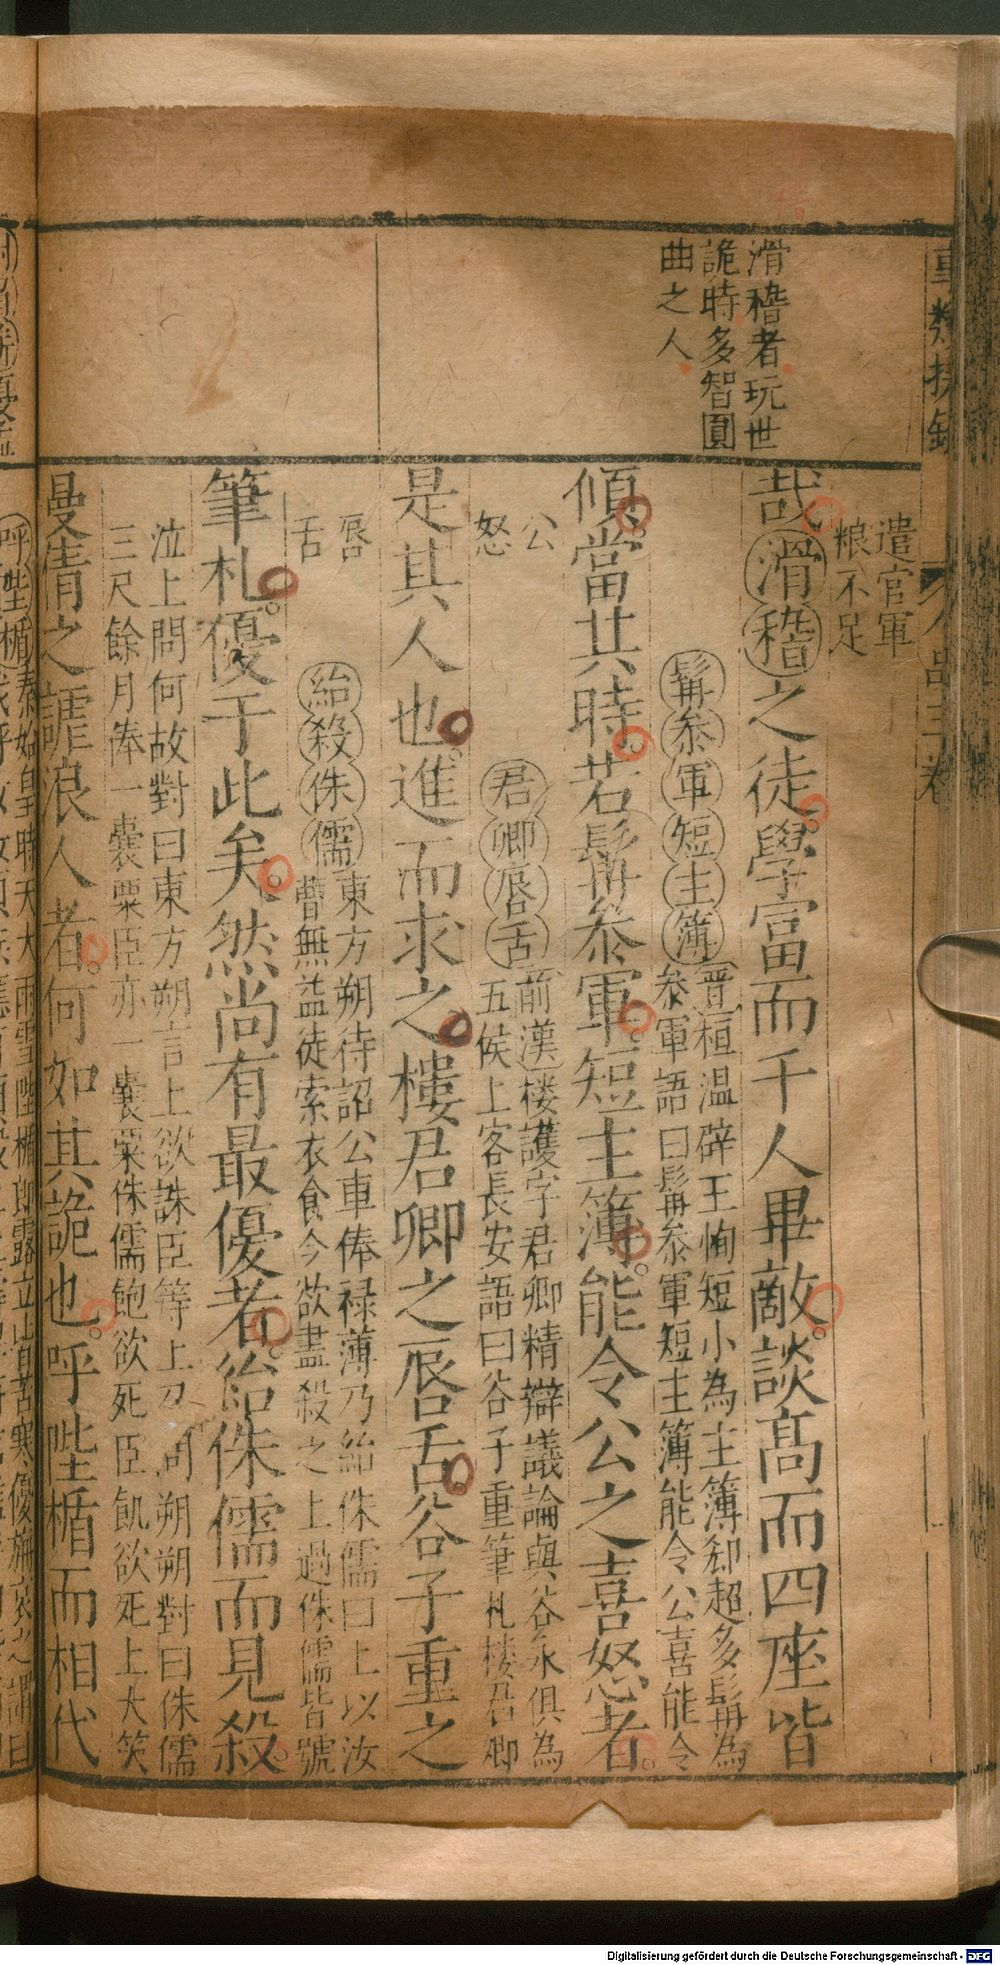 滑稽者玩世
詭時多智圓
曲之人
遣官軍
粮不足
哉滑稽之徒學富而千人畢敵談高而四座皆
髯叅軍短主簿晉桓温辟王恂短小為主簿郤超多髯為
叅軍語曰髯叅軍短主簿能令公喜能令
傾當其時若髯叅軍短主簿能令公之喜怒者
公
怒
君卿唇舌前漢楼護字君卿精辯議論與谷永俱為
五侯上客長安語曰谷子重筆札楼君卿
是其人也進而求之樓君卿之唇舌谷子重之
唇
舌
紿殺侏儒東方朔待詔公車俸禄薄乃紿侏儒曰上以汝
曹無益徒索衣食今欲盡殺之上過侏儒皆號
筆札優于此矣然尚有最優者紿侏儒而見殺
泣上問何故對曰東方朔言上欲誅臣等上召問朔朔對曰侏儒
三尺餘月俸一囊粟臣亦一囊粟侏儒飽欲死臣飢欲死上大笑
曼倩之謔浪人者何如其詭也呼陛楯而相代
人品三卷
Digitalisierung gefördert durch die Deutsche Forschungsgemeinschaft - DFG